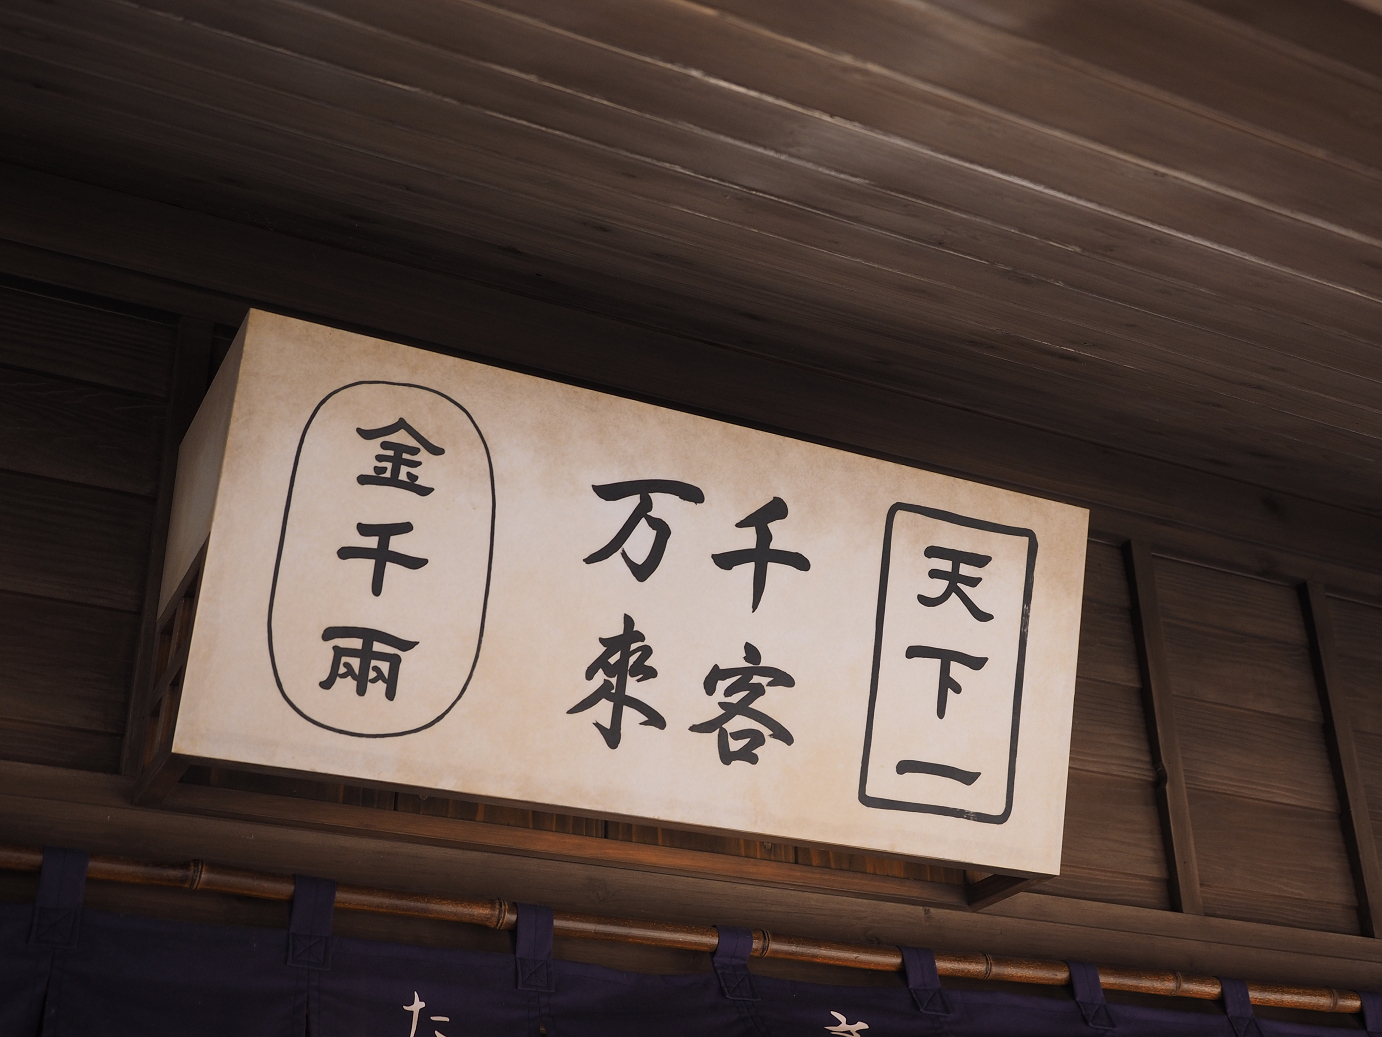 天下一
千客
万來
金千兩
た